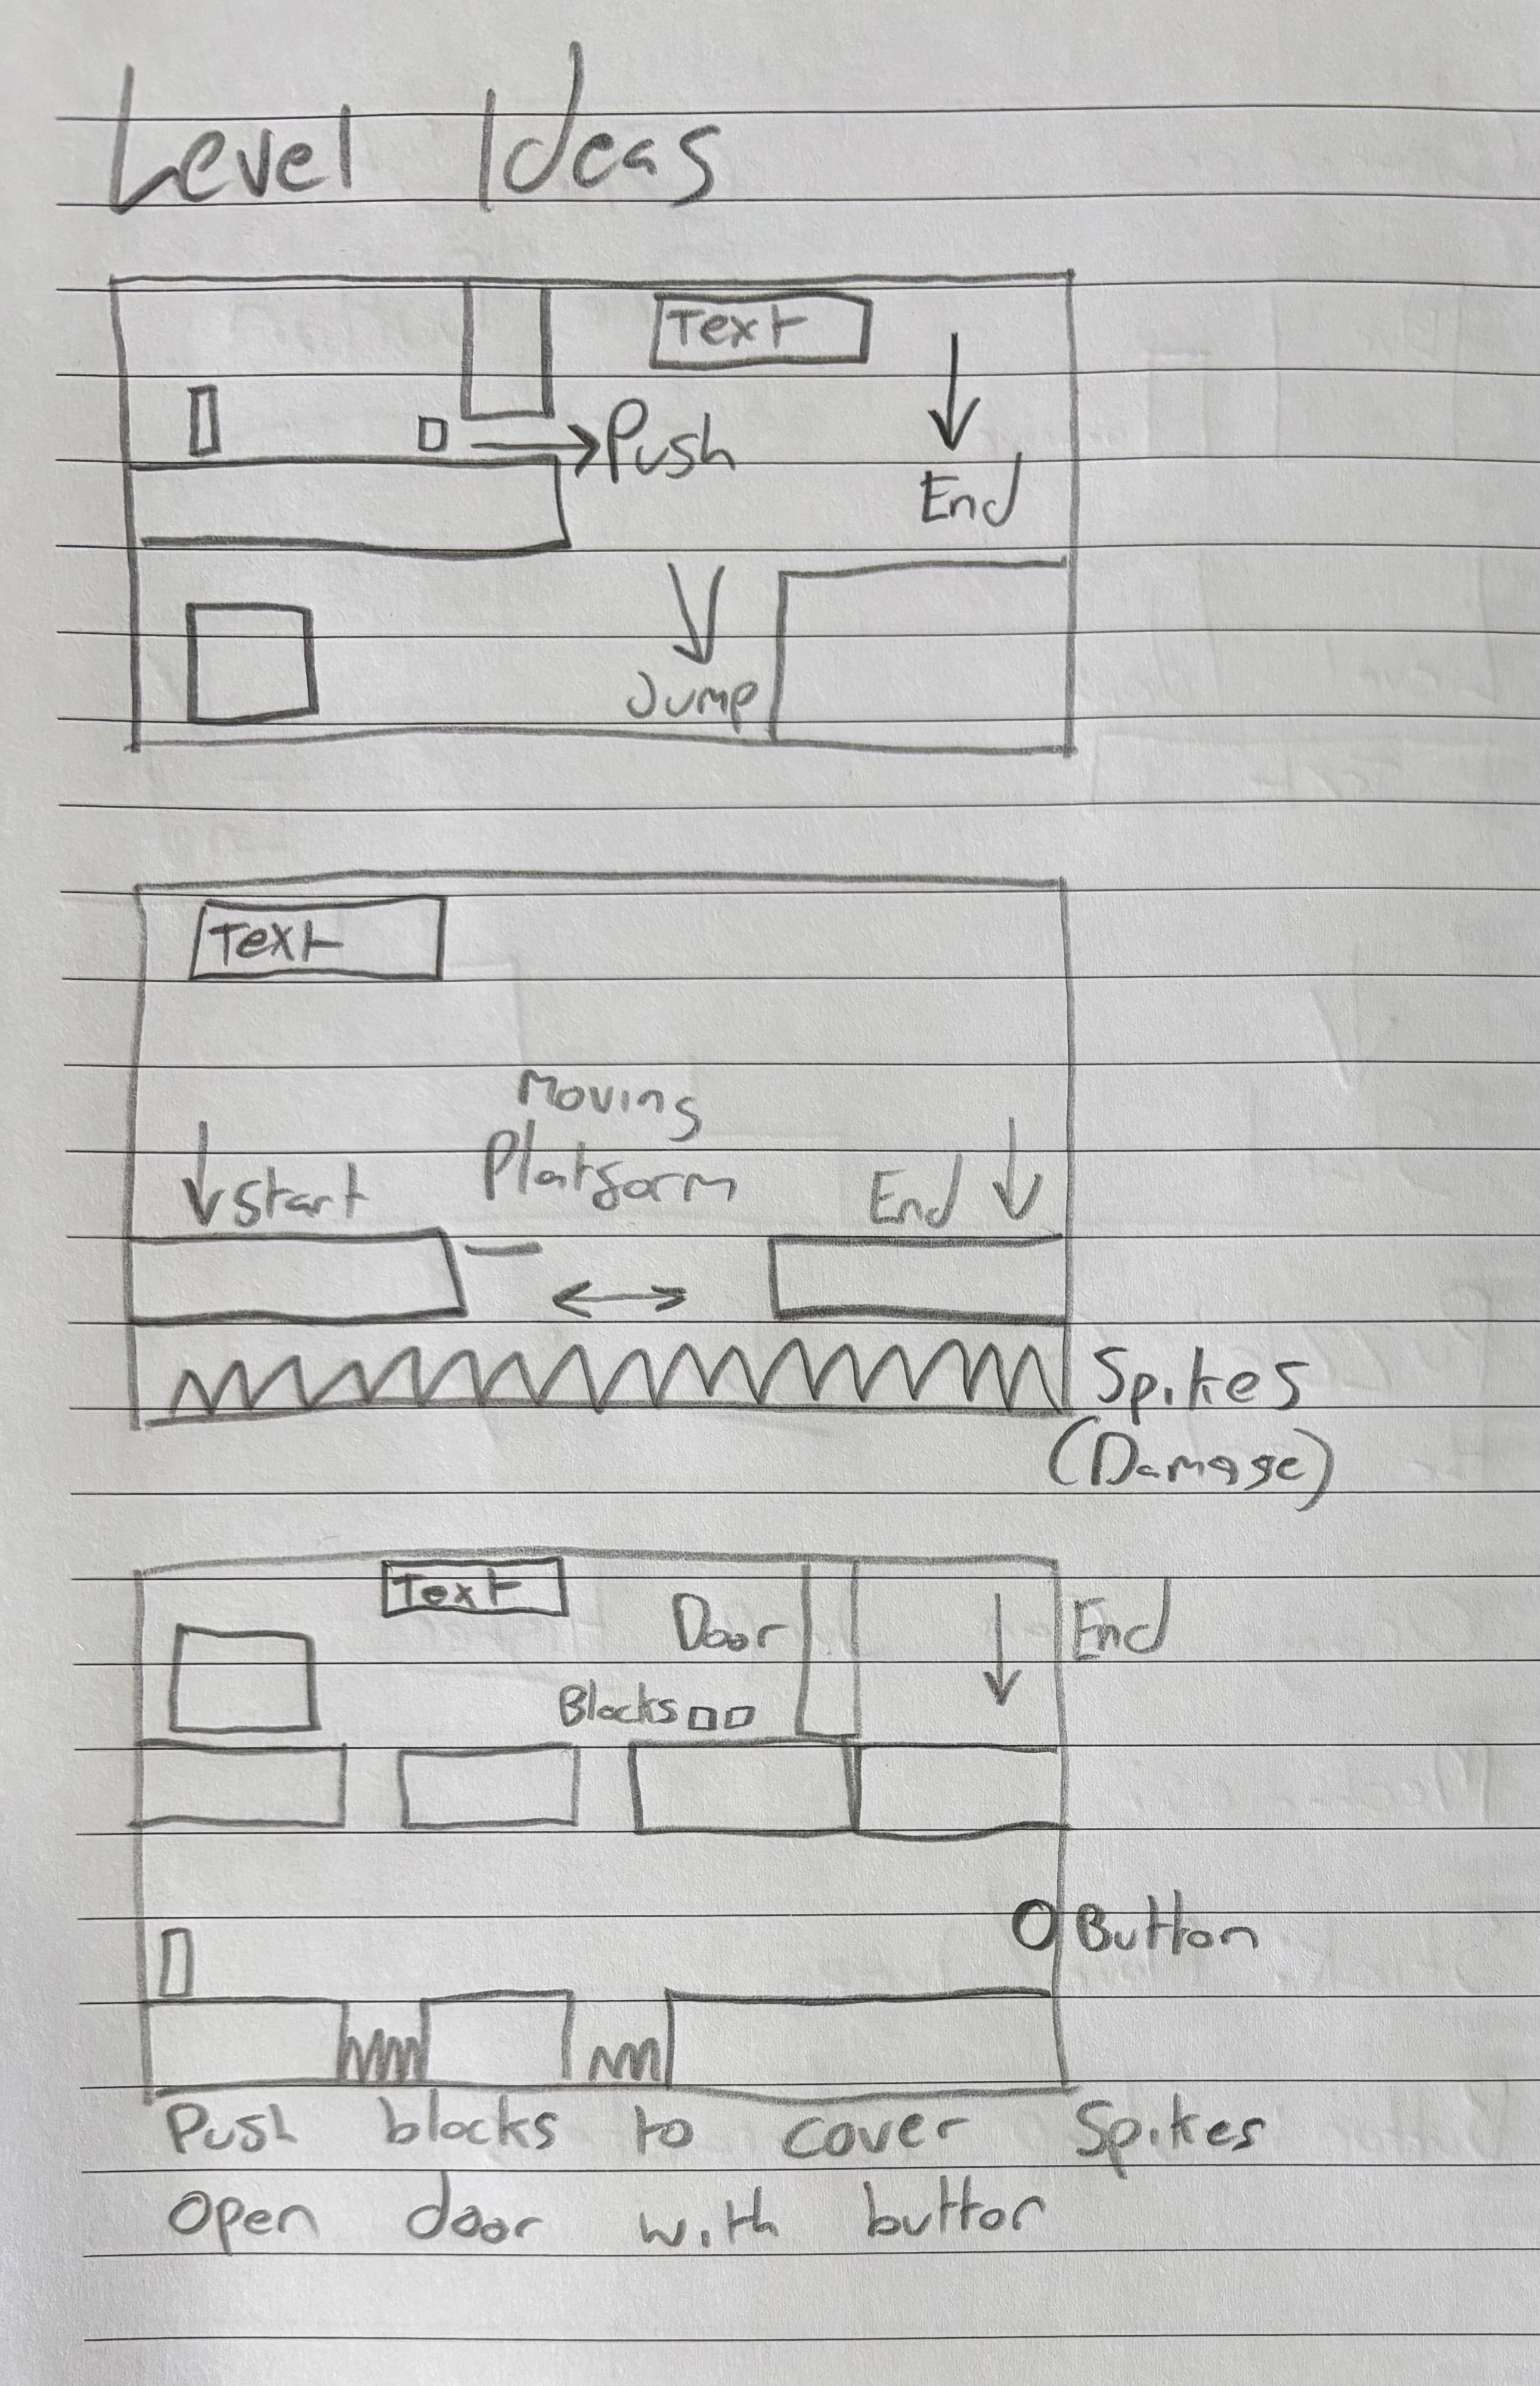 Level Ideas
Text
Push
End
Jump
Text
Moving
Platform
Start
End
Spikes
(Damage)
Text
Door
End
Blocks
Button
Push blocks to cover Spikes
Open door with button